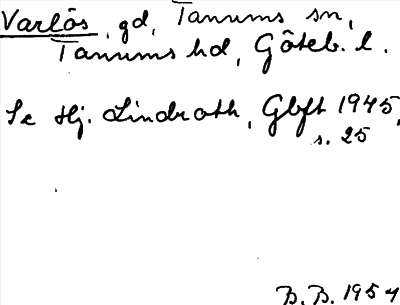 Varlös, gd, Tanums sn,
Tanums hd, Göteb. l.
Se Hj. Lindroth, Gbft 1945,
s. 25
B. B. 1954